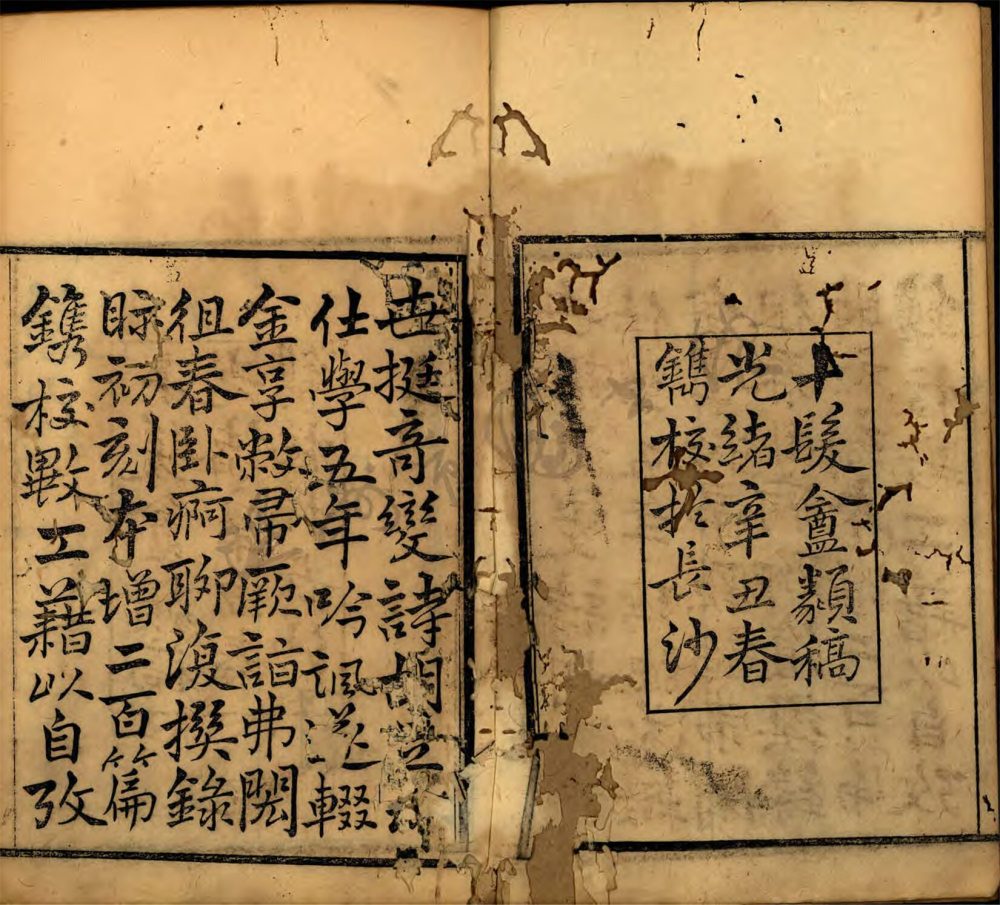 十髮盦類稿
光緒辛丑春
鐫校於長沙
世挺奇變詩胡
仕學五年吟諷遂輟
金享敝帚厥詣弗閎
徂春卧痾聊復撰錄
眎初刻本增二百篇
鐫校斁工藉以自攷